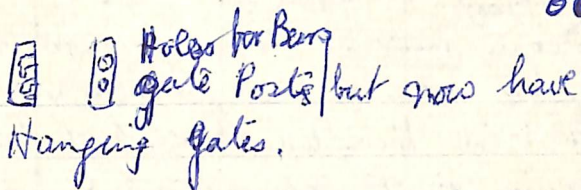 Holes for Bars
gate Posts but now have
Hanging gates.